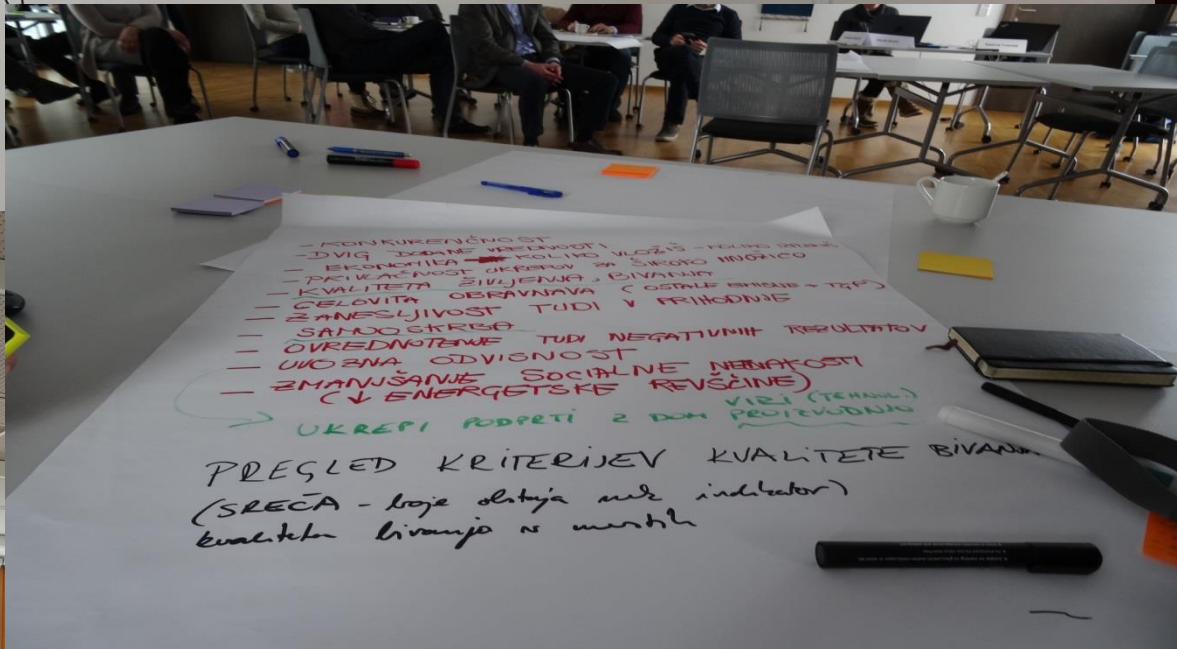 - KONKURENČNOST
- DVIG DODANE VREDNOSTI
- EKONOMIKA KOLIKO VLOŽIŠ - KOLIKO
- PRIVLAČNOST UKREPOV ZA ŠIROKO MNOŽICO
- KVALITETA ŽIVLJENJA, BIVANJA
- CELOVITA OBRAVNAVA (OSTALE EMISIJE + TGP)
- ZANESLJIVOST TUDI V PRIHODNJE
- SAMOOSKRBA
- OVREDNOTENJE TUDI NEGATIVNIH REZULTATOV
- UVOZNA ODVISNOST
- ZMANJŠANJE SOCIALNE NEENAKOSTI
(↓ ENERGETSKE REVŠČINE)
VIRI (TEHNOL.)
UKREPI PODPRTI Z DOM PROIZVODNJO
PREGLED KRITERIJEV KVALITETE BIVANJA
(SREČA - indikator)
kvaliteta bivanja v mestih